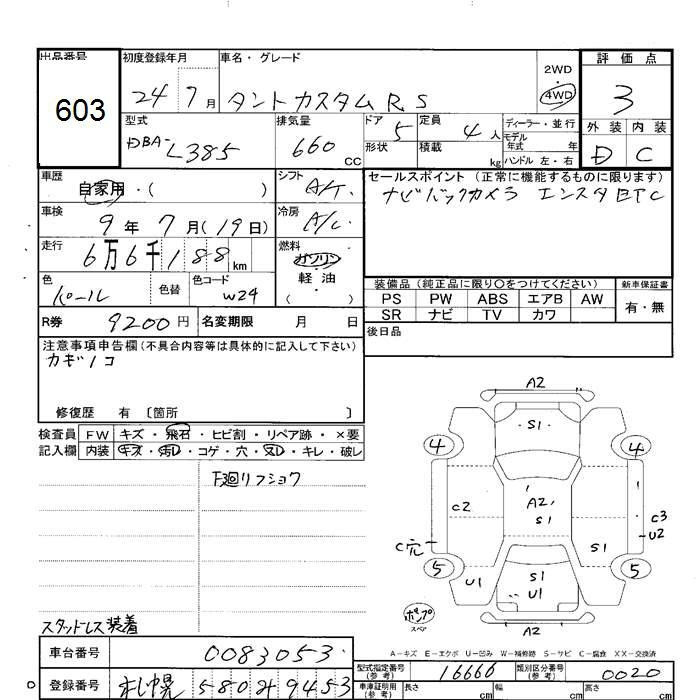 出品番号 初度登録年月 車名・グレード 評価点
603
24 7月 タントカスタム RS 2WD 4WD 3
型式 排気量 ドア 定員 ディーラー・並行 外装 内装
DBA-L385 660 CC 5 4人 モデル年式 年
形状 積載 kg ハンドル 左・右 D C
車歴 自家用・( ) シフト A/T
セールスポイント (正常に機能するものに限ります)
ナビ バックカメラ エンスタ ETC
車検 9年 7月(19日) 冷房 A/C
走行 6万6千188km 燃料 ガソリン・軽油 ( )
色 パール 色替 色コード W24
装備品(純正品に限り○をつけてください) 新車保証書
PS PW ABS エアB AW 有・無
SR ナビ TV カワ
R券 9200円 名変期限 月 日
後日品
注意事項申告欄(不具合内容等は具体的に記入して下さい)
カギ1コ
修復歴 有 〔箇所 〕
検査員 FW キズ・飛石・ヒビ割・リペア跡・×要
記入欄 内装 キズ・汚れ・コゲ・穴・スレ・キレ・破レ
下廻リフショク
A2
S1
4 4
A2
C2 S1 C3
U2
C穴 S1
5 S1 5
U1 U1
ポンプ
スペア
A2
スタッドレス装着
A-キズ E-エクボ U-凹み W-補修跡 S-サビ C-腐食 XX-交換済
車台番号 0083053
型式指定番号(参考) 16666 類別区分番号(参考) 0020
登録番号 札幌 580 オ 9453
車庫証明用(参考) 長さ cm 幅 cm 高さ cm